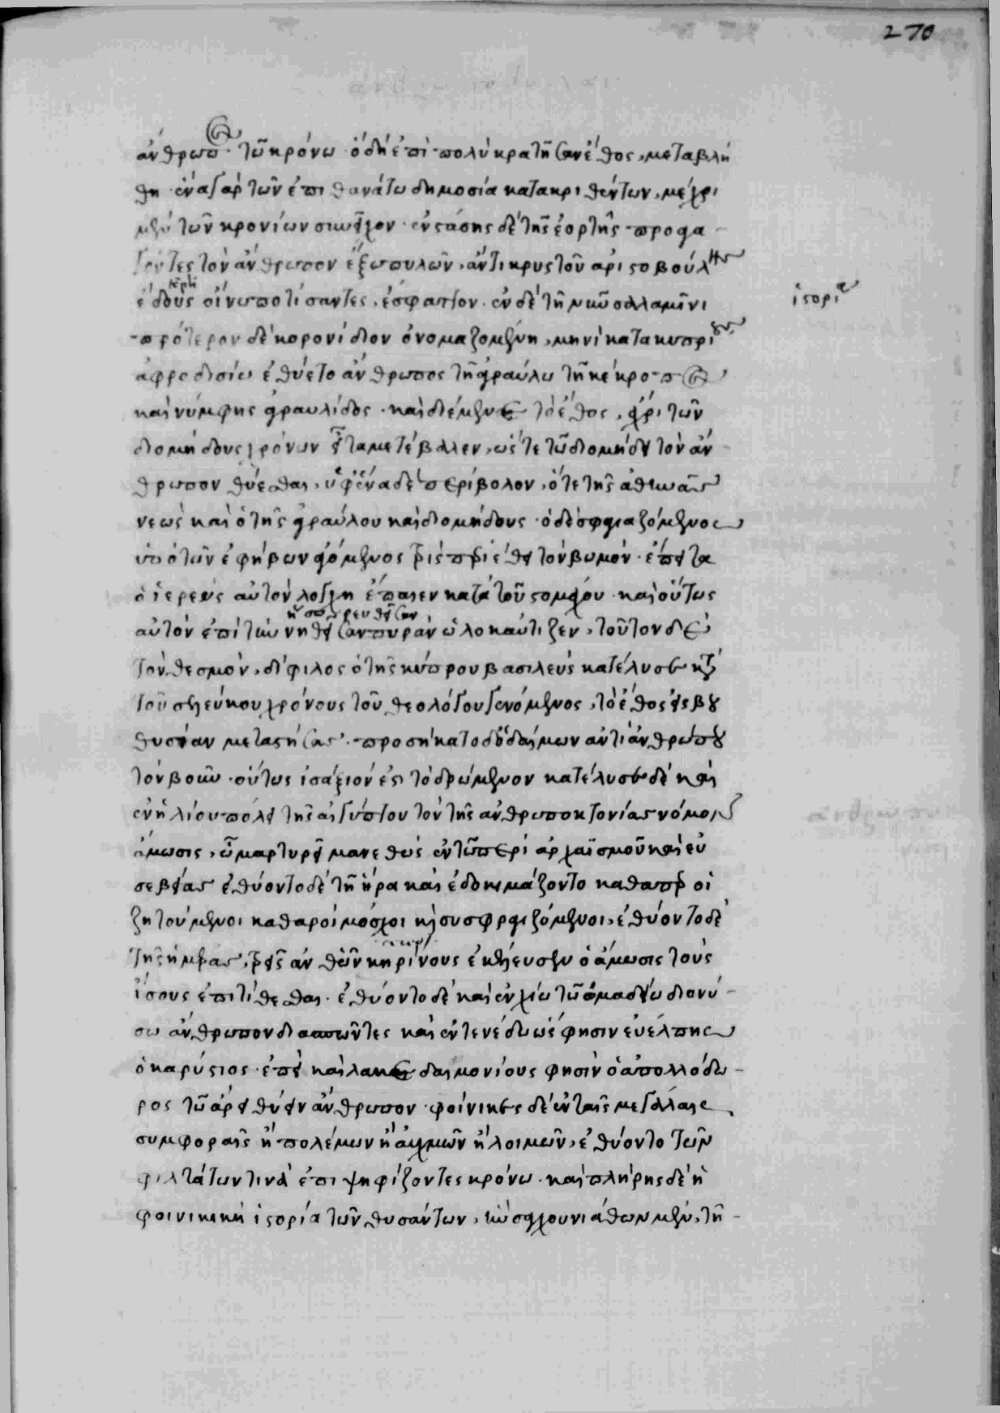 270
ἄνθρωπος τῷ κρόνῳ· ὃ δὴ ἐπὶ πολὺ κρατῆσαν ἔθος, μετεβλή
θη· ἕνα γὰρ τῶν ἐπὶ θανάτῳ δημοσίᾳ κατακριθέντων, μέχρι
μὲν τῶν κρονίων συνεῖχον· ἐνστάσης δὲ τῆς ἑορτῆς προαγα
γόντες τὸν ἄνθρωπον ἔξω πυλῶν, ἄντικρυς τοῦ ἀριστοβούλης
ἕδους οἴνῳ ποτίσαντες, ἔσφαττον· ἐν δὲ τῇ νῦν σαλαμῖνι
ἱστορία
πρότερον δὲ κορονίδι ὀνομαζομένῃ, μηνὶ κατὰ κυπρίους
ἀφροδισίῳ ἐθύετο ἄνθρωπος τῇ ἀγραύλῳ τῇ κέκροπος
καὶ νύμφης ἀγραυλίδος· καὶ διέμενε τὸ ἔθος, ἄχρι τῶν
διομήδους χρόνων εἶτα μετέβαλεν, ὥστε τῷ διομήδει τὸν ἄν
θρωπον θύεσθαι, ὑφ' ἕνα δὲ περίβολον, ὅ τε τῆς ἀθηνᾶς
νεὼς καὶ ὁ τῆς ἀγραύλου καὶ διομήδους· ὁ δὲ σφαγιαζόμενος
ὑπὸ τῶν ἐφήβων ἀγόμενος τρὶς περιέθει τὸν βωμόν· ἔπειτα
ὁ ἱερεὺς αὐτὸν λόγχῃ ἔπαιεν κατὰ τοῦ στομάχου· καὶ οὕτως
αὐτὸν ἐπὶ τὴν νηθεῖσαν πυρὰν ὡλοκαύτιζεν, τοῦτον δὲ
τὸν θεσμὸν, δίφιλος ὁ τῆς κύπρου βασιλεὺς κατέλυσε κατὰ
τοῦ σελεύκου χρόνους τοῦ θεολόγου γενόμενος, τὸ ἔθος εἰς βου
θυσίαν μεταστήσας· προσήκατο δ' ὁ δαίμων ἀντὶ ἀνθρώπου
τὸν βοῦν· οὕτως ἰσάξιόν ἐστι τὸ δρώμενον κατέλυσε δὲ καὶ
ἐν ἡλίου πόλει τῆς αἰγύπτου τὸν τῆς ἀνθρωποκτονίας νόμον
ἄμωσις, ὡς μαρτυρεῖ μανεθὼς ἐν τῷ περὶ ἀρχαϊσμοῦ καὶ εὐ
σεβείας ἐθύοντο δὲ τῇ ἥρᾳ καὶ ἐδοκιμάζοντο καθάπερ οἱ
ζητούμενοι καθαροὶ μόσχοι καὶ συσφραγιζόμενοι, ἐθύοντο δὲ
τῆς ἡμέρας, τρεῖς ἀνθ' ὧν κηρίνους ἐκέλευσεν ὁ ἄμωσις τοὺς
ἴσους ἐπιτίθεσθαι· ἐθύοντο δὲ καὶ ἐν χίῳ τῷ ὠμαδίῳ διονύ
σῳ ἄνθρωπον διασπῶντες καὶ ἐν τενέδῳ ὥς φησιν εὐέλπης
ὁ καρύστιος· ἐπεὶ καὶ λακεδαιμονίους φησὶν ὁ ἀπολλόδω
ρος τῷ ἄρει θύειν ἄνθρωπον· φοίνικες δὲ ἐν ταῖς μεγάλαις
συμφοραῖς ἢ πολέμων ἢ αὐχμῶν ἢ λοιμῶν, ἐθύοντο τῶν
φιλτάτων τινὰ ἐπιψηφίζοντες κρόνῳ· καὶ πλήρης δὲ ἡ
φοινικικὴ ἱστορία τῶν θυσάντων, ἣν σαγχουνιάθων μὲν, τῇ